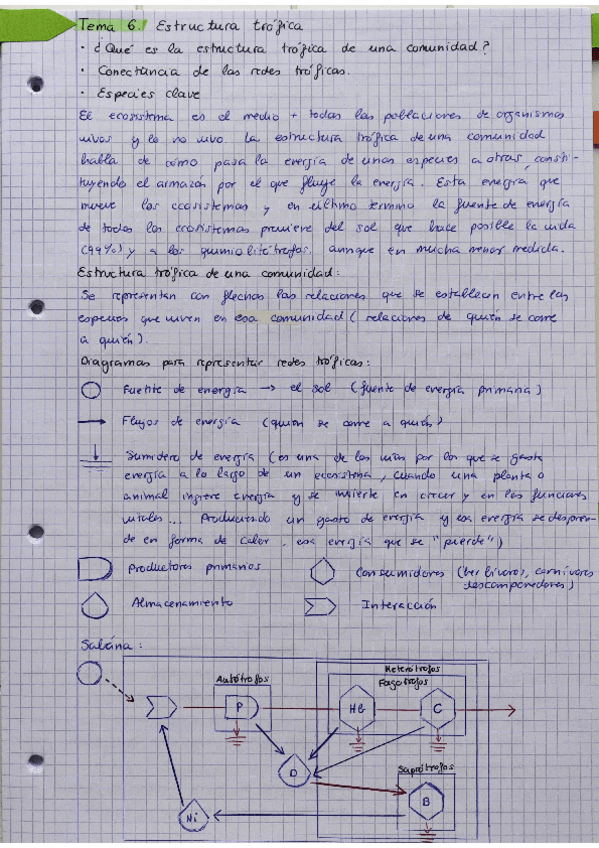 Tema 6. Estructura trófica
· ¿Qué es la estructura trófica de una comunidad?
· Conectancia de las redes tróficas.
· Especies clave
El ecosistema es el medio + todas las poblaciones de organismos
vivos y lo no vivo. La estructura trófica de una comunidad
habla de cómo pasa la energía de unas especies a otras, consti-
tuyendo el armazón por el que fluye la energía. Esta energía que
mueve los ecosistemas y en último término la fuente de energía
de todos los ecosistemas proviene del sol que hace posible la vida
(99%) y a los quimiolitótrofos, aunque en mucha menor medida.
Estructura trófica de una comunidad:
Se representan con flechas las relaciones que se establecen entre las
especies que viven en esa comunidad (relaciones de quién se come
a quién).
Diagramas para representar redes tróficas:
Fuente de energía → el sol (fuente de energía primaria)
Flujos de energía (quien se come a quién)
Sumidero de energía (es una de las vías por los que se gasta
energía a lo largo de un ecosistema, cuando una planta o
animal ingiere energía y se invierte en crecer y en las funciones
vitales... Produciendo un gasto de energía y esa energía se despren-
de en forma de calor, esa energía que se "pierde")
Productores primarios
Consumidores (herbívoros, carnívoros
descomponedores)
Almacenamiento
Interacción
Sabána:
Heterótrofos
Autótrofos
Fagotrofos
P
Hb
C
D
Saprótrofos
B
Ni